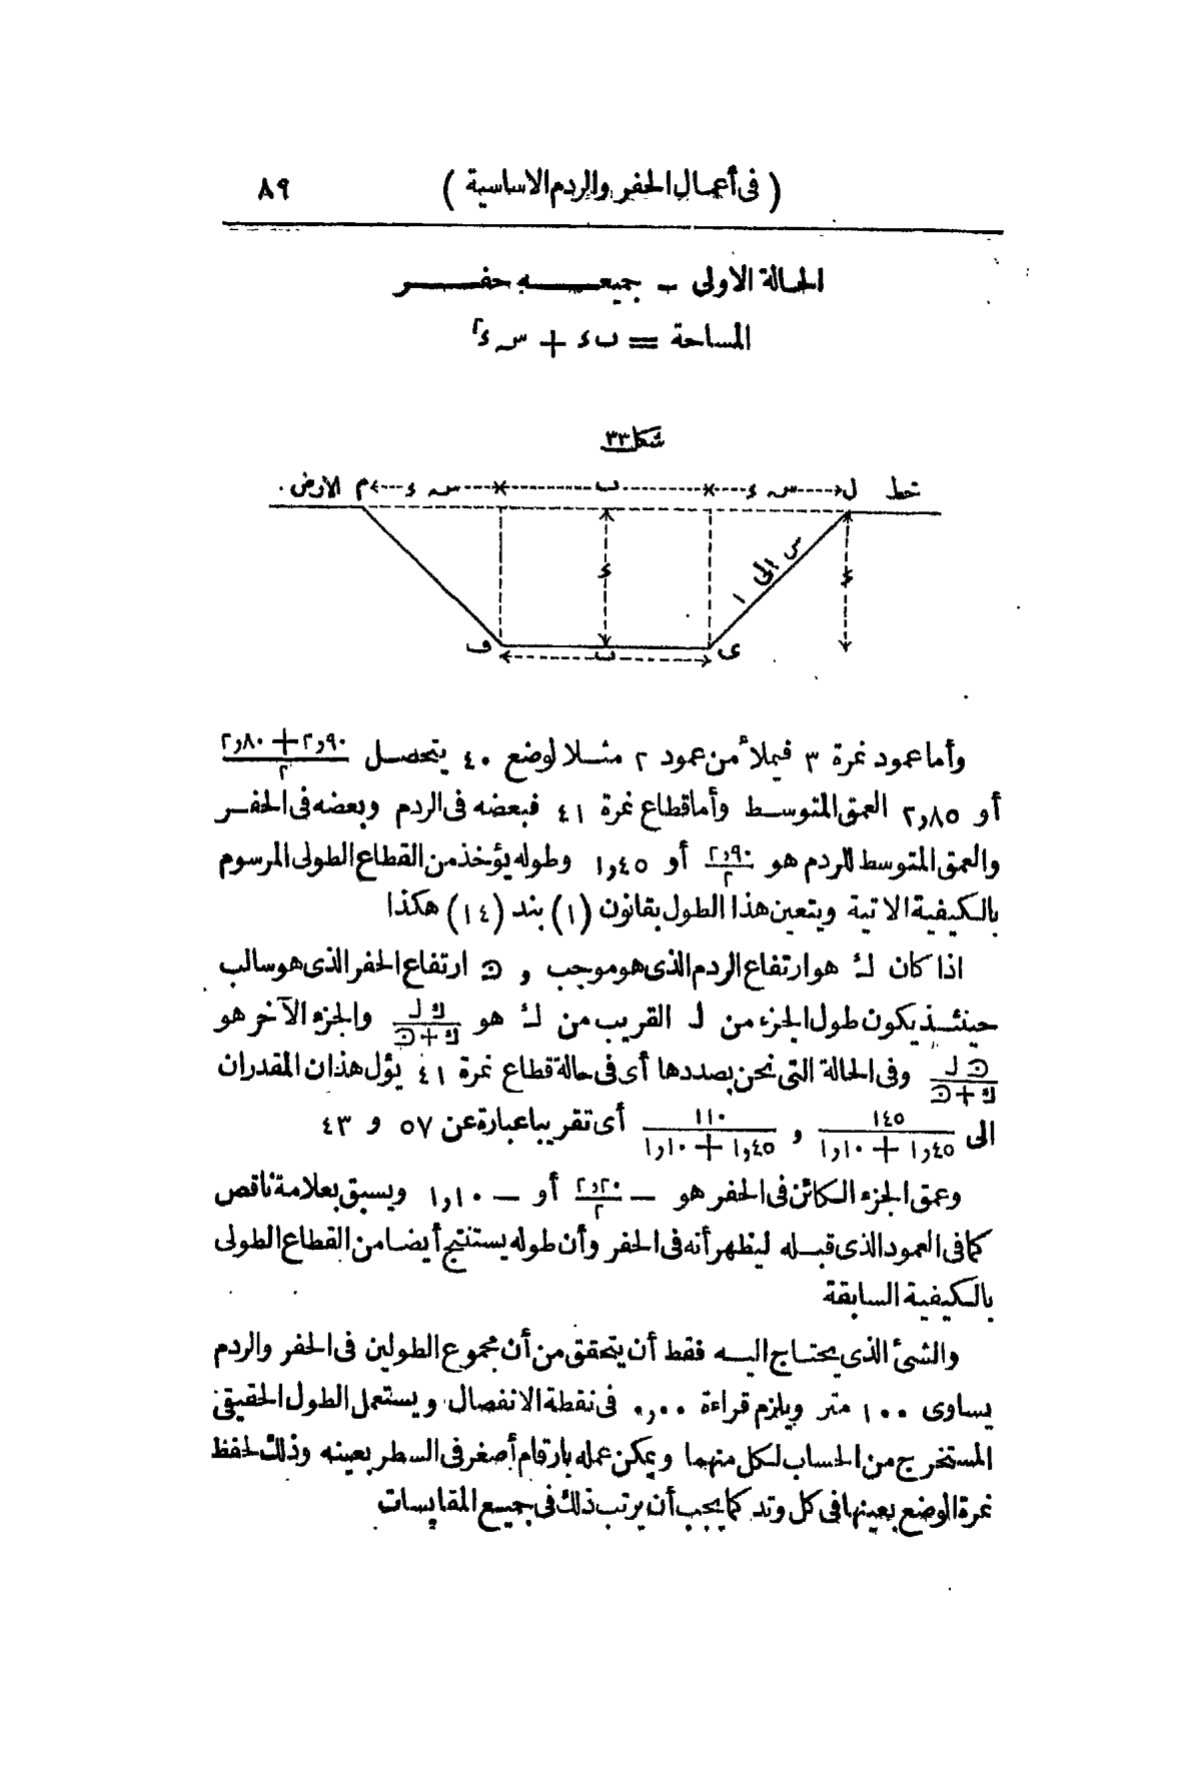 (فى أعمال الحفر والردم الاساسية) ٨٩
الحالة الاولى - جميعه حفر
المساحة = ب ء + س ء٢
شكل ٣٣
خط ل س ء ب س ء م الارض
ء ء س الى ١
ى ب ف
وأما عمود نمرة ٣ فيملأ من عمود ٢ مثلا لوضع ٤٠ يتحصل (٢,٩٠ + ٢,٨٠)/٢
أو ٢,٨٥ العمق المتوسط وأما قطاع نمرة ٤١ فبعضه فى الردم وبعضه فى الحفر
والعمق المتوسط للردم هو ٢,٩٠/٢ أو ١,٤٥ وطوله يؤخذ من القطاع الطولى المرسوم
بالكيفية الاتية ويتعين هذا الطول بقانون (١) بند (١٤) هكذا
اذا كان ك هو ارتفاع الردم الذى هو موجب و ﺩ ارتفاع الحفر الذى هو سالب
حينئذ يكون طول الجزء من ل القريب من ك هو ك ل/(ك + ﺩ) والجزء الآخر هو
ﺩ ل/(ك + ﺩ) وفى الحالة التى نحن بصددها أى فى حالة قطاع نمرة ٤١ يؤل هذان المقدران
الى ١٤٥/(١,٤٥ + ١,١٠) و ١١٠/(١,٤٥ + ١,١٠) أى تقريبا عبارة عن ٥٧ و ٤٣
وعمق الجزء الكائن فى الحفر هو - ٢,٢٠/٢ أو - ١,١٠ ويسبق بعلامة ناقص
كما فى العمود الذى قبله ليظهر أنه فى الحفر وأن طوله يستنتج أيضا من القطاع الطولى
بالكيفية السابقة
والشئ الذى يحتاج اليه فقط أن يتحقق من أن مجموع الطولين فى الحفر والردم
يساوى ١٠٠ متر ويلزم قراءة ٠,٠٠ فى نقطة الانفصال ويستعمل الطول الحقيقى
المستخرج من الحساب لكل منهما ويمكن عمله بارقام أصغر فى السطر بعينه وذلك لحفظ
نمرة الوضع بعينها فى كل وتد كما يجب أن يرتب ذلك فى جميع المقايسات